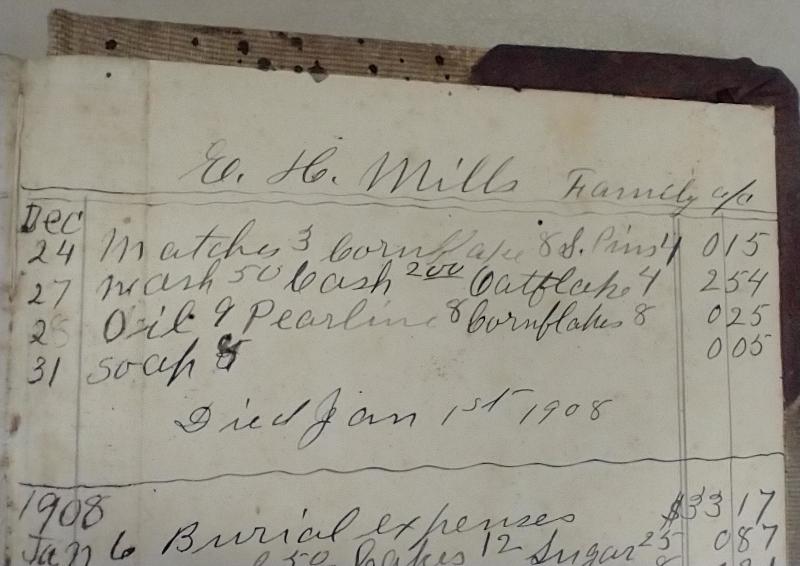 E. H. Mills Family a/c
Dec
24 Matches 3 Cornflake 8 S. Pins 4 0 15
27 mash 50 Cash 2 00 Oatflake 4 2 54
28 Oil 9 Pearline 8 Cornflakes 8 0 25
31 Soap 5 0 05
Died Jan 1st 1908
1908 $33 17
Jan 6 Burial expenses 0 87
50 Cakes 12 Sugar 25